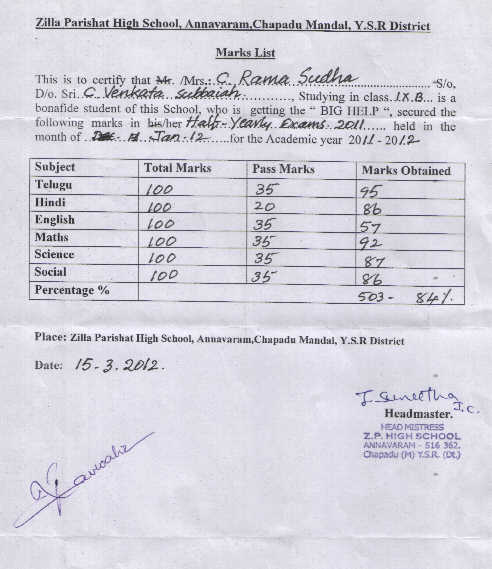 Zilla Parishat High School, Annavaram,Chapadu Mandal, Y.S.R District
Marks List
This is to certify that Mr. /Mrs.: C. Rama Sudha "S/o,
D/o. Sri. C. Venkata Subbaiah, Studying in class. IX.B... is a
bonafide student of this School, who is getting the " BIG HELP ", secured the
following marks in his/her Half-Yearly Exams. 2011...... held in the
month of Jan-12.....for the Academic year 2011-2012
Subject Total Marks Pass Marks Marks Obtained
Telugu 100 35 95
Hindi 100 20 86
English 100 35 57
Maths 100 35 92
Science 100 35 87
Social 100 35 86
Percentage % 503 - 84%.
Place: Zilla Parishat High School, Annavaram,Chapadu Mandal, Y.S.R District
Date: 15-3.2012.
I. Suneetha
Headmaster. I.C.
HEAD MISTRESS
Z.P. HIGH SCHOOL
ANNAVARAM - 516 362.
Chapadu (M) Y.S.R. (Dt.)